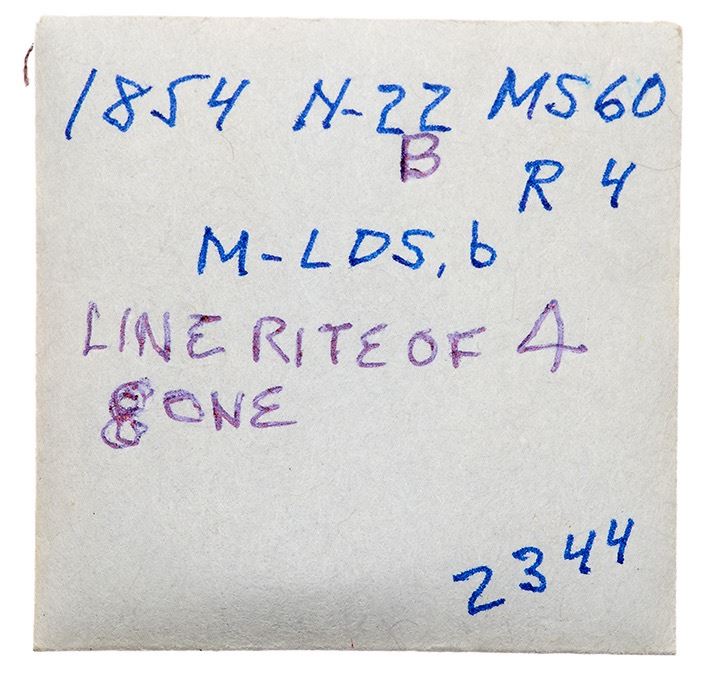 1854 N-22 MS60
B
R 4
M-LDS, b
LINE RITE OF 4
GONE
2344